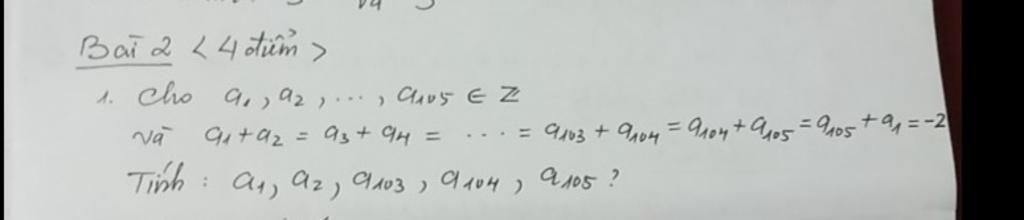 Bài 2 < 4 điểm >
1. Cho a₁, a₂, ..., a₁₀₅ ∈ Z
và a₁ + a₂ = a₃ + a₄ = ... = a₁₀₃ + a₁₀₄ = a₁₀₄ + a₁₀₅ = a₁₀₅ + a₁ = -2
Tính : a₁, a₂, a₁₀₃, a₁₀₄, a₁₀₅ ?